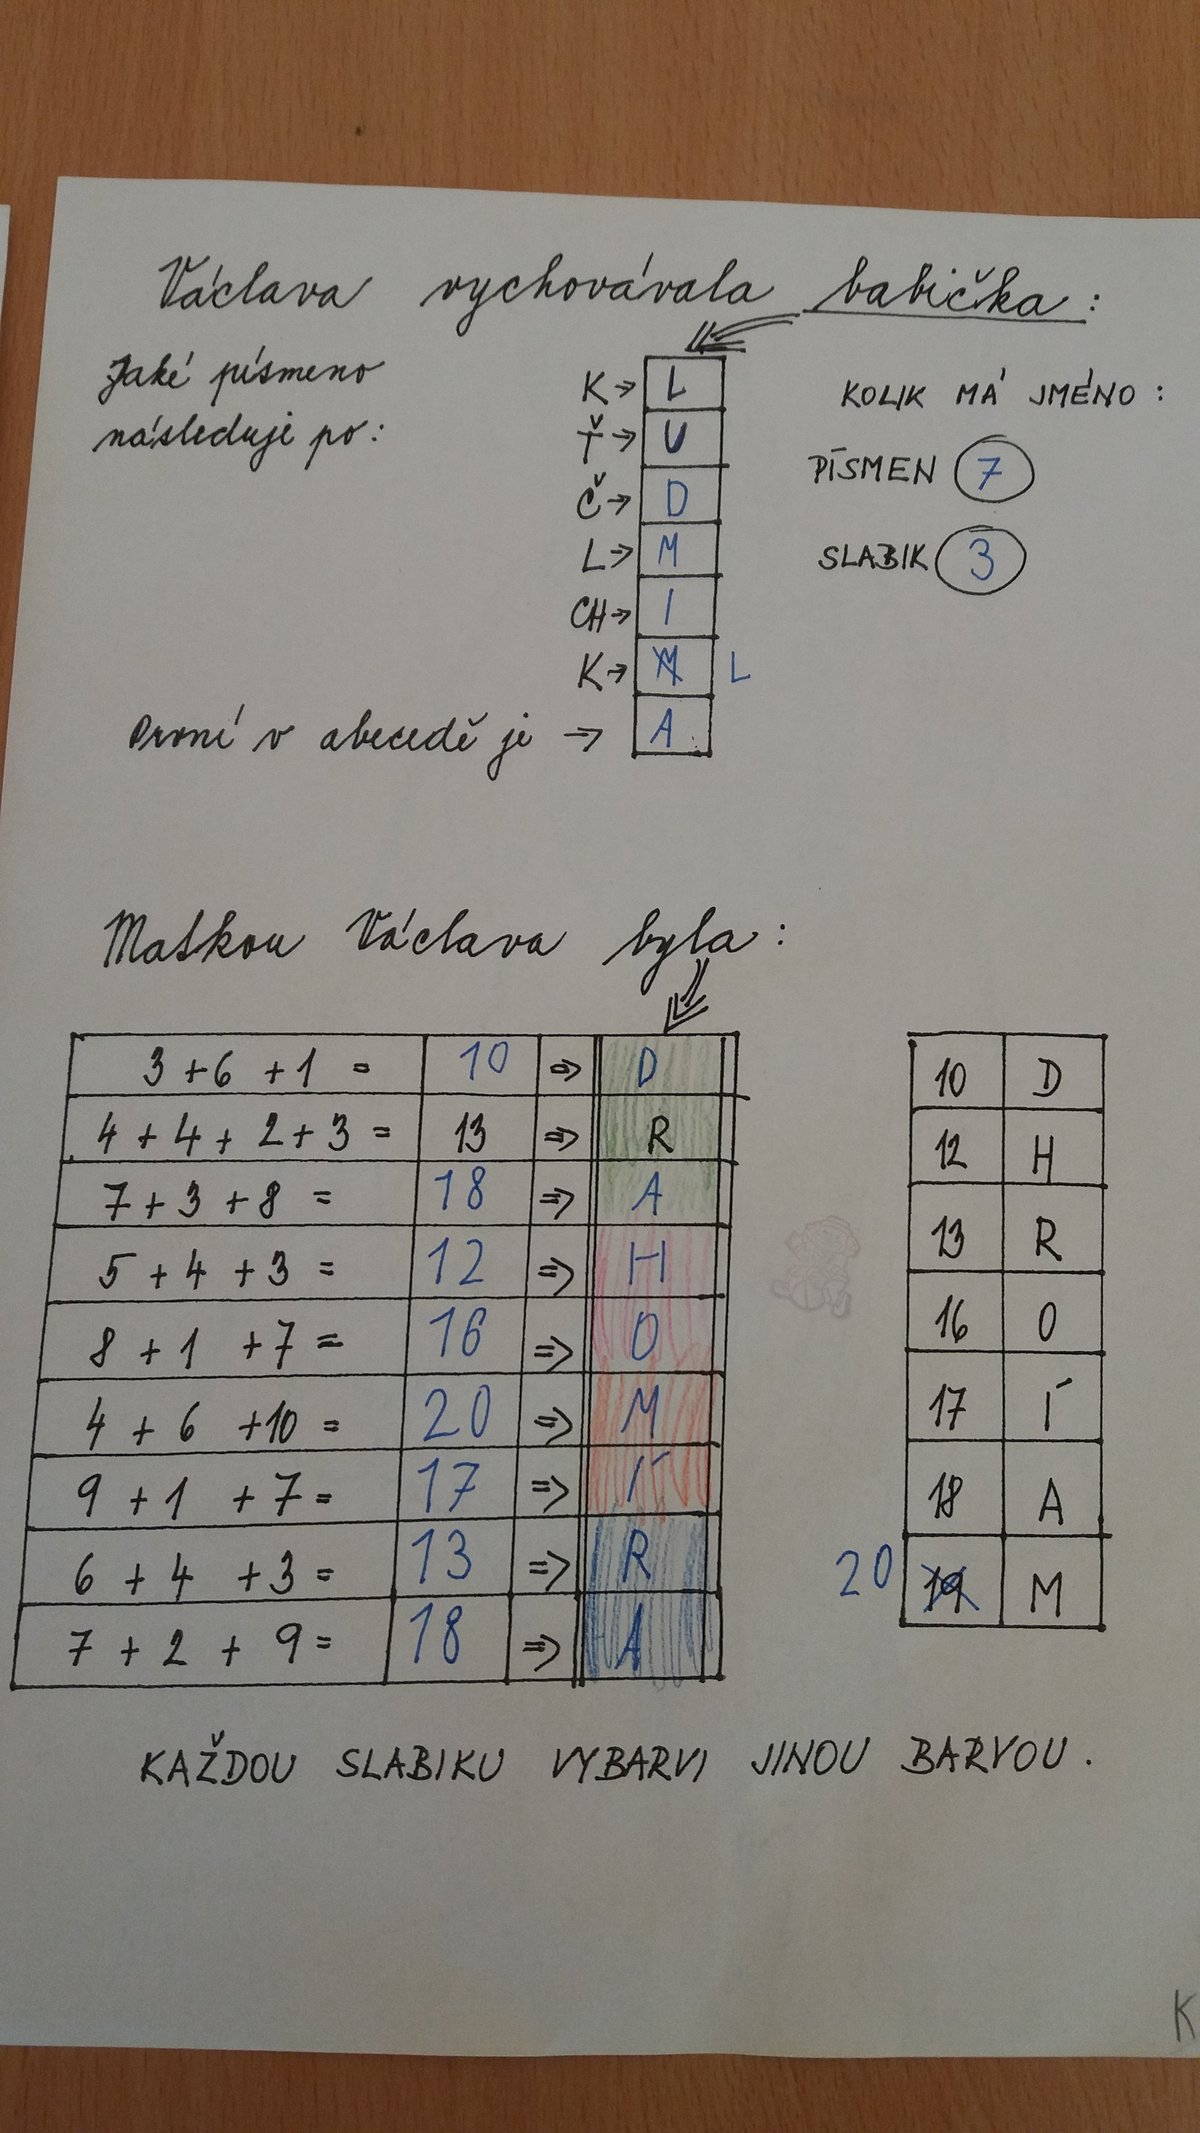 Václava vychovávala babička:
Jaké písmeno
následuje po:
K→ L
Ť→ U
Č→ D
L→ M
CH→ I
K→ M L
První v abecedě je → A
KOLIK MÁ JMÉNO:
PÍSMEN 7
SLABIK 3
Matkou Václava byla:
3+6+1= 10 => D
4+4+2+3= 13 => R
7+3+8= 18 => A
5+4+3= 12 => H
8+1+7= 16 => O
4+6+10= 20 => M
9+1+7= 17 => Í
6+4+3= 13 => R
7+2+9= 18 => A
10 D
12 H
13 R
16 O
17 Í
18 A
20 19 M
KAŽDOU SLABIKU VYBARVI JINOU BARVOU.
K